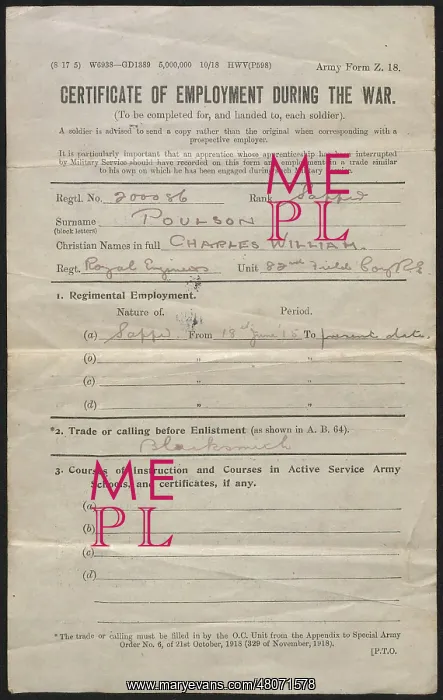 (8 17 5) W6938—GD1389 5,000,000 10/18 HWV(P598)
Army Form Z. 18.
CERTIFICATE OF EMPLOYMENT DURING THE WAR.
(To be completed for, and handed to, each soldier).
A soldier is advised to send a copy rather than the original when corresponding with a
prospective employer.
It is particularly important that an apprentice whose apprenticeship has been interrupted
by Military Service should have recorded on this form any employment in a trade similar
to his own on which he has been engaged during such Military Service.
Regtl. No. 200086 Rank Sapper
Surname POULSON
(block letters)
Christian Names in full CHARLES WILLIAM.
Regt. Royal Engineers Unit 82nd Field Coy RE
1. Regimental Employment.
Nature of. Period.
(a) Sapper From 18th June 15 To present date.
(b) " "
(c) " "
(d) " "
*2. Trade or calling before Enlistment (as shown in A. B. 64).
Blacksmith
3. Courses of Instruction and Courses in Active Service Army
Schools, and certificates, if any.
(a)
(b)
(c)
(d)
*The trade or calling must be filled in by the O.C. Unit from the Appendix to Special Army
Order No. 6, of 21st October, 1918 (329 of November, 1918).
[P.T.O.
ME
PL
ME
PL
www.maryevans.com/48071578